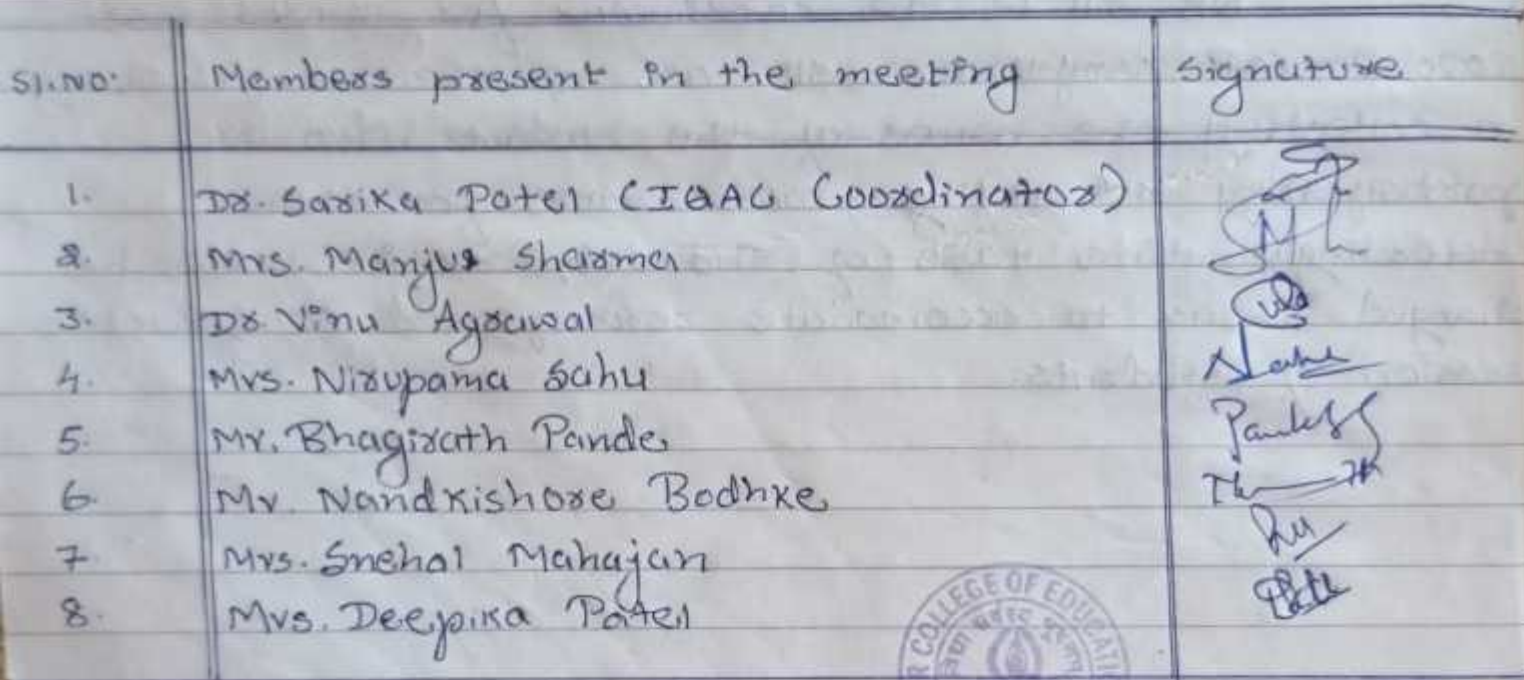 Sl.No: Members present in the meeting Signature
1. Dr. Sarika Patel (IQAC Coordinator)
2. Mrs. Manjus Sharma
3. Dr. Vinu Agrawal
4. Mrs. Nirupama Sahu
5. Mr. Bhagirath Pande
6. Mr. Nandkishore Bodhke
7. Mrs. Snehal Mahajan
8. Mrs. Deepika Patel
R COLLEGE OF EDUCATI